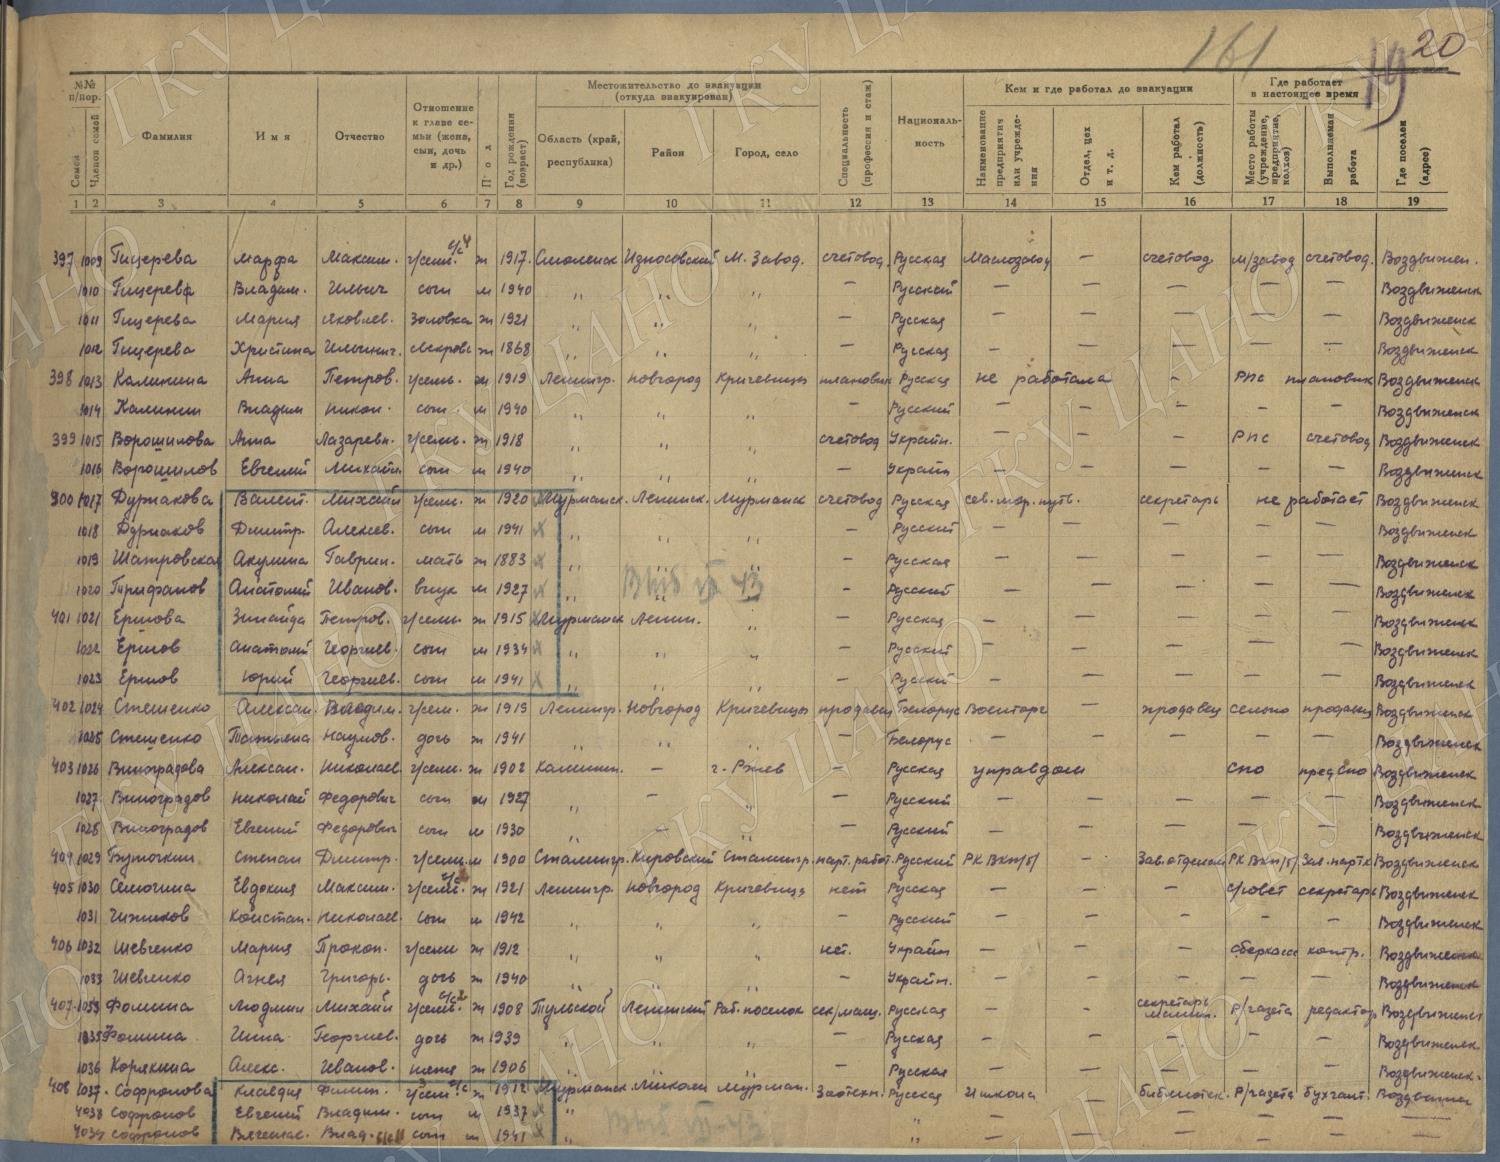 161
20
19
№№ п/пор.
Семей
Членов семей
Фамилия
Имя
Отчество
Отношение к главе семьи (жена, сын, дочь и др.)
Пол
Год рождения (возраст)
Местожительство до эвакуации (откуда эвакуирован)
Область (край, республика)
Район
Город, село
Специальность (профессия и стаж)
Националь-ность
Кем и где работал до эвакуации
Наименование предприятия или учрежде-ния
Отдел, цех и т. д.
Кем работал (должность)
Где работает в настоящее время
Место работы (учреждение, предприятие, колхоз)
Выполняемая работа
Где поселен (адрес)
1 2 3 4 5 6 7 8 9 10 11 12 13 14 15 16 17 18 19
397 1009 Гицерева Марфа Максим. г/сем. ж 1917 Смоленск Износовский М. Завод. счетовод. Русская Маслозавод — счетовод м/завод счетовод. Воздвижен.
1010 Гицерева Владим. Ильич сын м 1940 " " " — Русский — — — — — Воздвиженск
1011 Гицерева Мария Яковлев. Золовка ж 1921 " " " — Русская — — — — — Воздвиженск
1012 Гицерева Христина Ильинич. свекровь ж 1868 " " " — Русская — — — — — Воздвиженск
398 1013 Калинина Анна Петров. г/семь. ж 1919 Ленингр. Новгород Кричевицы плановик Русская не работала — РПС плановик Воздвиженск
1014 Калинин Владим Никол. сын м 1940 " " " — Русский — — — — — Воздвиженск
399 1015 Ворошилова Анна Лазаревн. г/семь. ж 1918 " " " счетовод Украин. — — — РПС счетовод Воздвиженск
1016 Ворошилов Евгений Михайл. сын м 1940 " " " — Украин — — — — — Воздвиженск
400 1017 Дурнакова Валент. Михайл г/семь. ж 1920 Мурманск. Ленинск. Мурманск счетовод Русская сев. мор. путь. секретарь не работает Воздвиженск
1018 Дурнаков Дмитр. Алексев. сын м 1941 " " " — Русский — — — — — Воздвиженск
1019 Шатровская Акулина Гаврил. мать ж 1883 " " " — Русская — — — — — Воздвиженск
1020 Трифанов Анатолий Иванов. внук м 1927 " " " — Русский — — — — — Воздвиженск
Выб IX 43
401 1021 Ершова Зинаида Петров. г/семь. ж 1915 Мурманск Ленин. " — Русская — — — — — Воздвиженск
1022 Ершов Анатолий Георгиев. сын м 1934 " " " — Русский — — — — — Воздвиженск
1023 Ершов Юрий Георгиев. сын м 1941 " " " — Русский — — — — — Воздвиженск
402 1024 Стешенко Алексан. Владим. г/сем. ж 1919 Ленингр. Новгород Кричевицы продавец Белорус Военторг — продавец сельпо продавец Воздвиженск
1025 Стешенко Татьяна Наумов. дочь ж 1941 " " " — Белорус — — — — — Воздвиженск
403 1026 Виноградова Алексан. Николаев. г/семи. ж 1902 Калинин. — г. Ржев — Русская управдом СПО пред спо Воздвиженск
1027 Виноградов Николай Федорович сын м 1927 " — " — Русский — — — — — Воздвиженск
1028 Виноградов Евгений Федорович сын м 1930 " — " — Русский — — — — — Воздвиженск
404 1029 Буточкин Степан Дмитр. г/семи м 1900 Сталингр. Кировский Сталингр. парт. работ. Русский РК ВКП/б/ — Зав. отделом РК ВКП/б/ Воздвиженск
405 1030 Евдокия Максим. г/семь. ж 1921 Ленингр. Новгород Кричевицы нет Русская — — — с/совет секретарь Воздвиженск
1031 Чижиков Констан. Николаев. сын м 1942 " " " — Русский — — — — — Воздвиженск
406 1032 Шевченко Мария Прокоп. г/семи ж 1912 " " " нет. Украин — — — сберкасса контр. Воздвиженск
1033 Шевченко Агнея Григорь. дочь ж 1940 " " " — Украин. — — — — — Воздвиженск
407 1034 Фомина Людмил Михайл г/семь. ж 1908 Тульской Ленинский Раб. поселок сек/маш. Русская секретарь Р/газета редактор Воздвиженск
1035 Фомина Инна Георгиев. дочь ж 1939 " " " — Русская — — — — — Воздвиженск
1036 Корякина Алекс. Иванов. ж 1906 " " " — Русская — — — — — Воздвиженск
408 1037 Софронова Клавдия Филип. г/сем. ж 1912 Мурманск. Мурман. Русская школа — библиотек. Р/газета бухгалт. Воздвиженск
1038 Софронов Евгений Владим. сын м 1937 "
1039 Софронов Вячеслав. Влад. сын м 1941 "
Выб IX-43
ГКУ ЦАНО